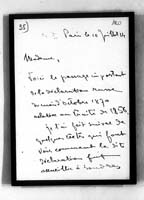 35
Paris le 10 Juillet 14
Madame,
Voici le passage important
de la déclaration russe
d'octobre 1870
relative au traité de 1856.
je l'ai fait suivre de
quelques textes qui font
voir comment la dite
déclaration fut
accueillie à